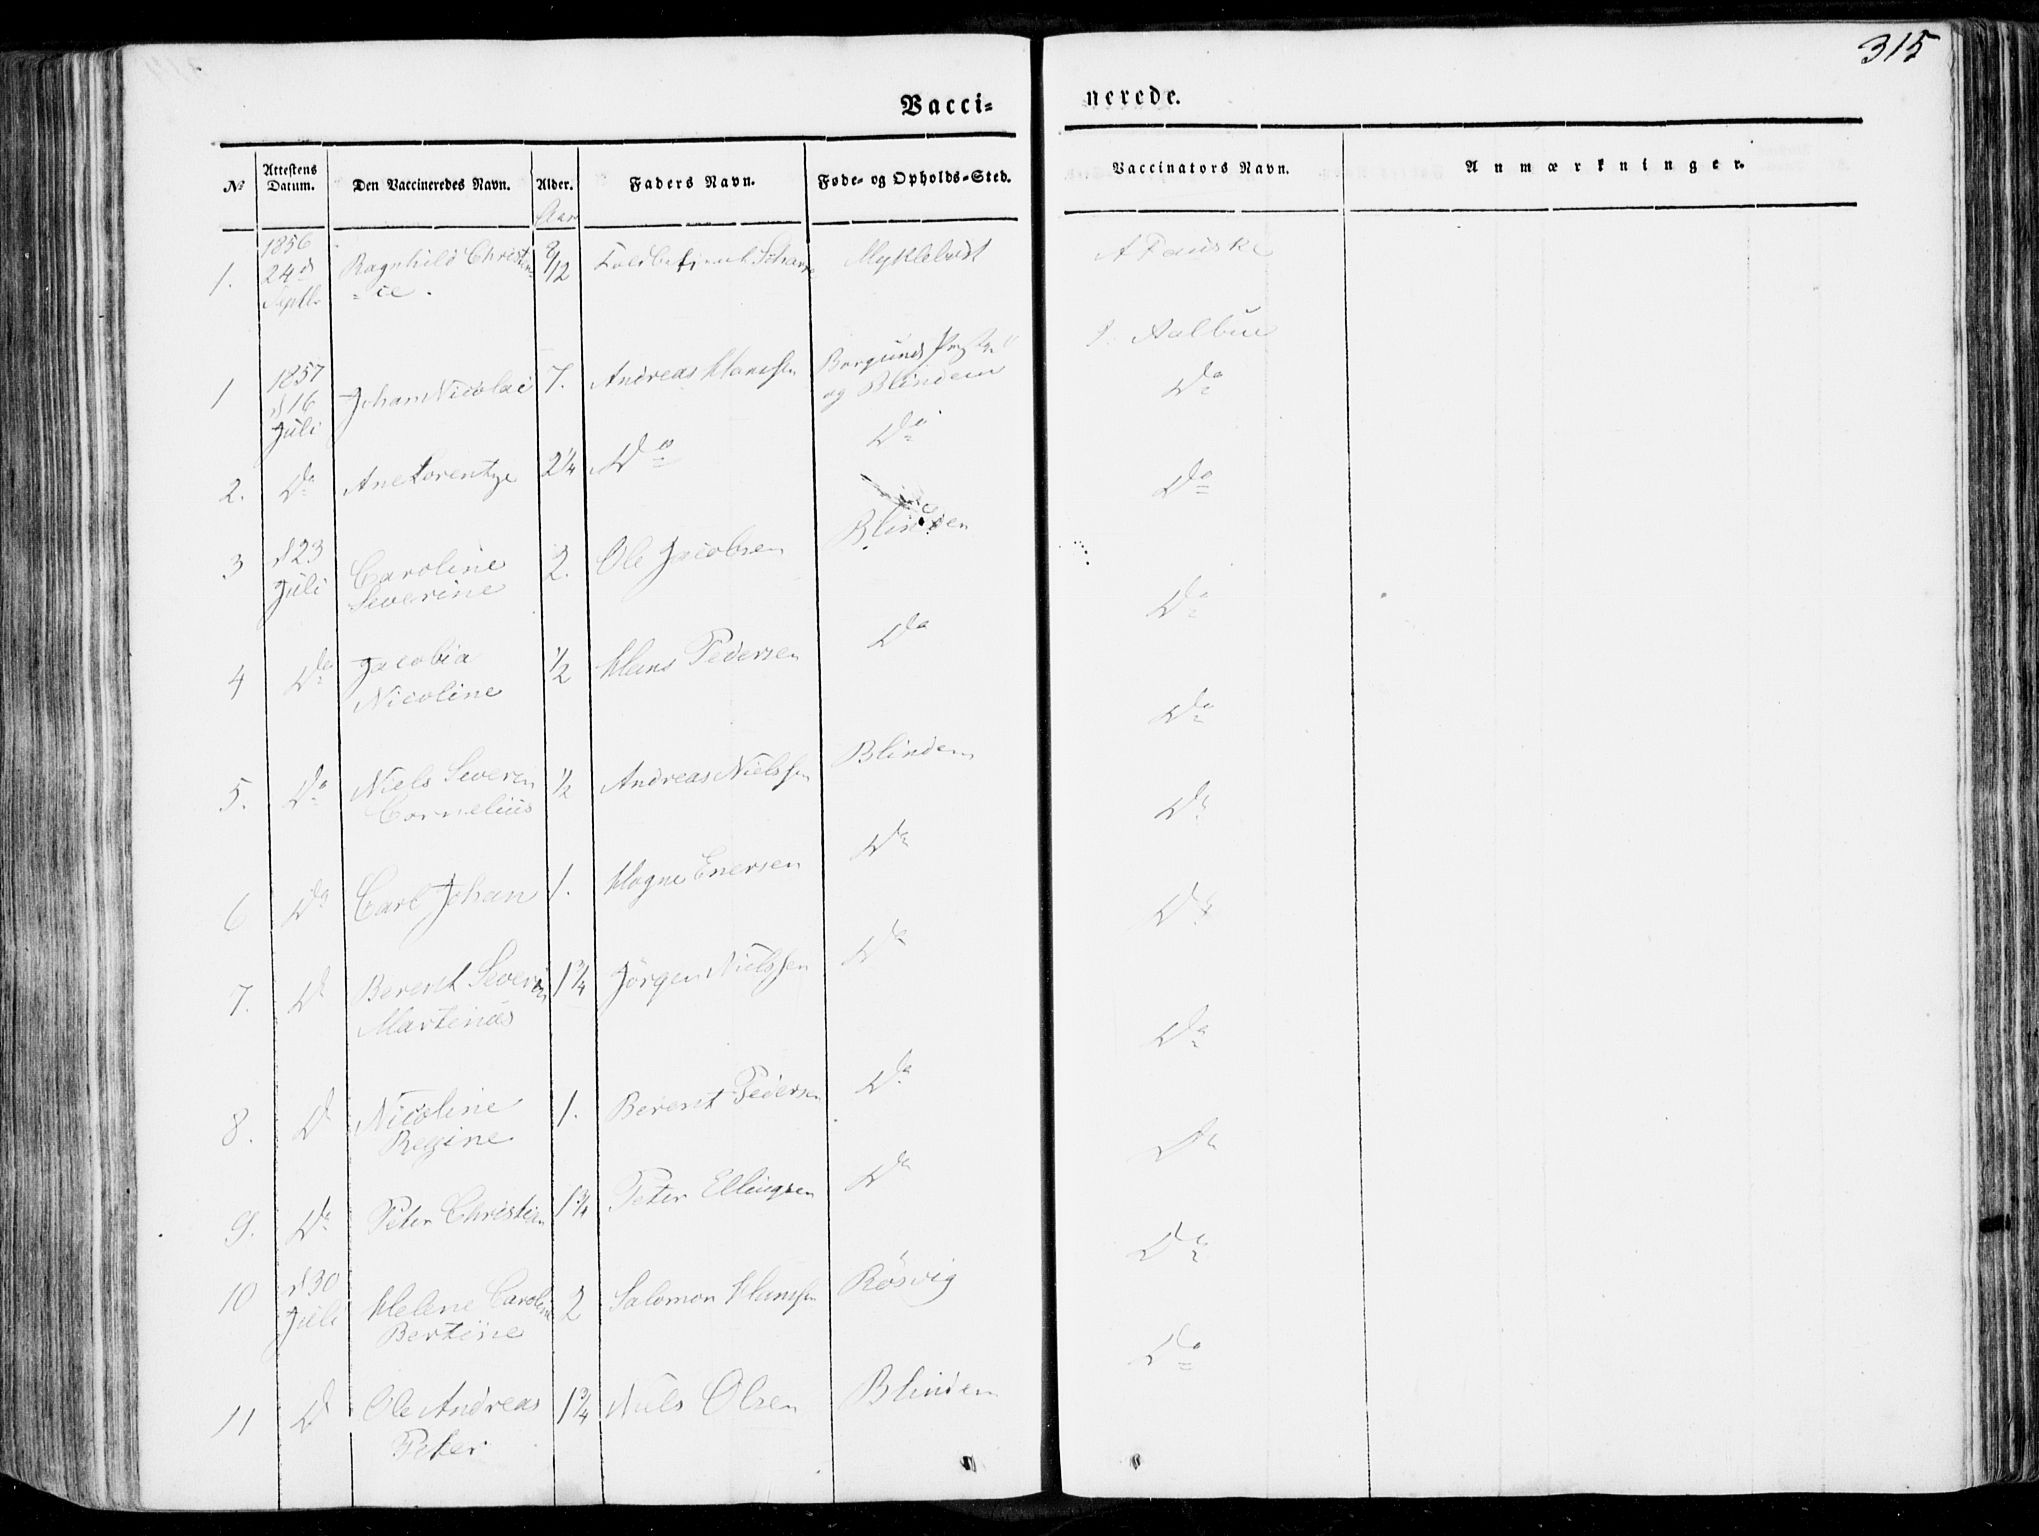 315
Vacci- nerede.
No Attestens Datum. Den Vaccineredes Navn. Alder. Faders Navn. Føde- og Opholds-Sted. Vaccinators Navn. Anmærkninger.
Aar
1856
1. 24d Septb. Ragnhild Christen- 8/12 Myklebust A Pauske
I. Aalbue
1857
1 d 16 Juli Johan Nicolai 7. Andreas Hanssen Borgunds
og Blindem Do
2. Do Ane Lorentze 2 1/4 Do Do Do
3 d 23 Juli Caroline 2. Ole Jacobsen Blindem Do
Severine
4 Do Jacobia 1/2 Hans Pedersen Do Do
Nicoline
5. Do Niels Severin 1/2 Andreas Nielssen Blindem Do
Cornelius
6 Do Carl Johan 1. Magne Enersen Do Do
7. Do Berent Severin 1 3/4 Jörgen Nielssen Do Do
Martinus
8. Do Nicoline 1. Berent Pedersen Do Do
Regine
9. Do Peter Christian 1 3/4 Peter Ellingsen Do Do
10 d 30 Juli Helene Caroline 2 Salomon Hanssen Rösvig Do
Bertine
11 Do Ole Andreas 1 3/4 Niels Olsen Blindem
Peter